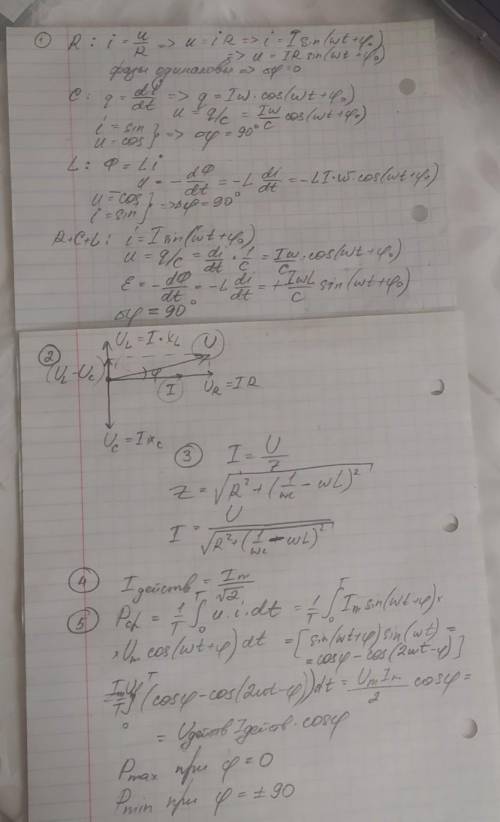 ① R: i = u/R => u = iR => i = I sin(ωt+φ₀)
=> u = IR sin(ωt+φ₀)
фазы одинаковы => Δφ=0
C: q = di/dt => q = Iω·cos(ωt+φ₀)
u = q/C = Iω/C cos(ωt+φ₀)
i = sin
u = cos } => Δφ = 90°
L: Φ = Li
u = -dΦ/dt = -L di/dt = -LI·ω cos(ωt+φ₀)
u = cos
i = sin } => Δφ = 90°
R+C+L: i = I sin(ωt+φ₀)
u = q/C = di/dt · 1/C = Iω/C · cos(ωt+φ₀)
ε = -dΦ/dt = -L di/dt = + IωL/C sin(ωt+φ₀)
Δφ = 90°
② U_L = I·x_L U
(U_L - U_C) φ I U_R = IR
U_C = I x_C
③ I = U/Z
Z = √(R² + (1/ωc - ωL)²)
I = U/√(R² + (1/ωc - ωL)²)
④ I действ = Im/√2
⑤ P_ср = 1/T ∫₀ᵀ u·i·dt = 1/T ∫₀ᵀ I_m sin(ωt+φ)×
× U_m cos(ωt+φ) dt = [sin(ωt+φ) sin(ωt) =
= cosφ - cos(2ωt-φ)]
= I_m U_m/T ∫₀ᵀ (cosφ - cos(2ωt-φ)) dt = U_m I_m/2 cosφ =
= U действ I действ · cosφ
P_max при φ = 0
P_min при φ = ± 90